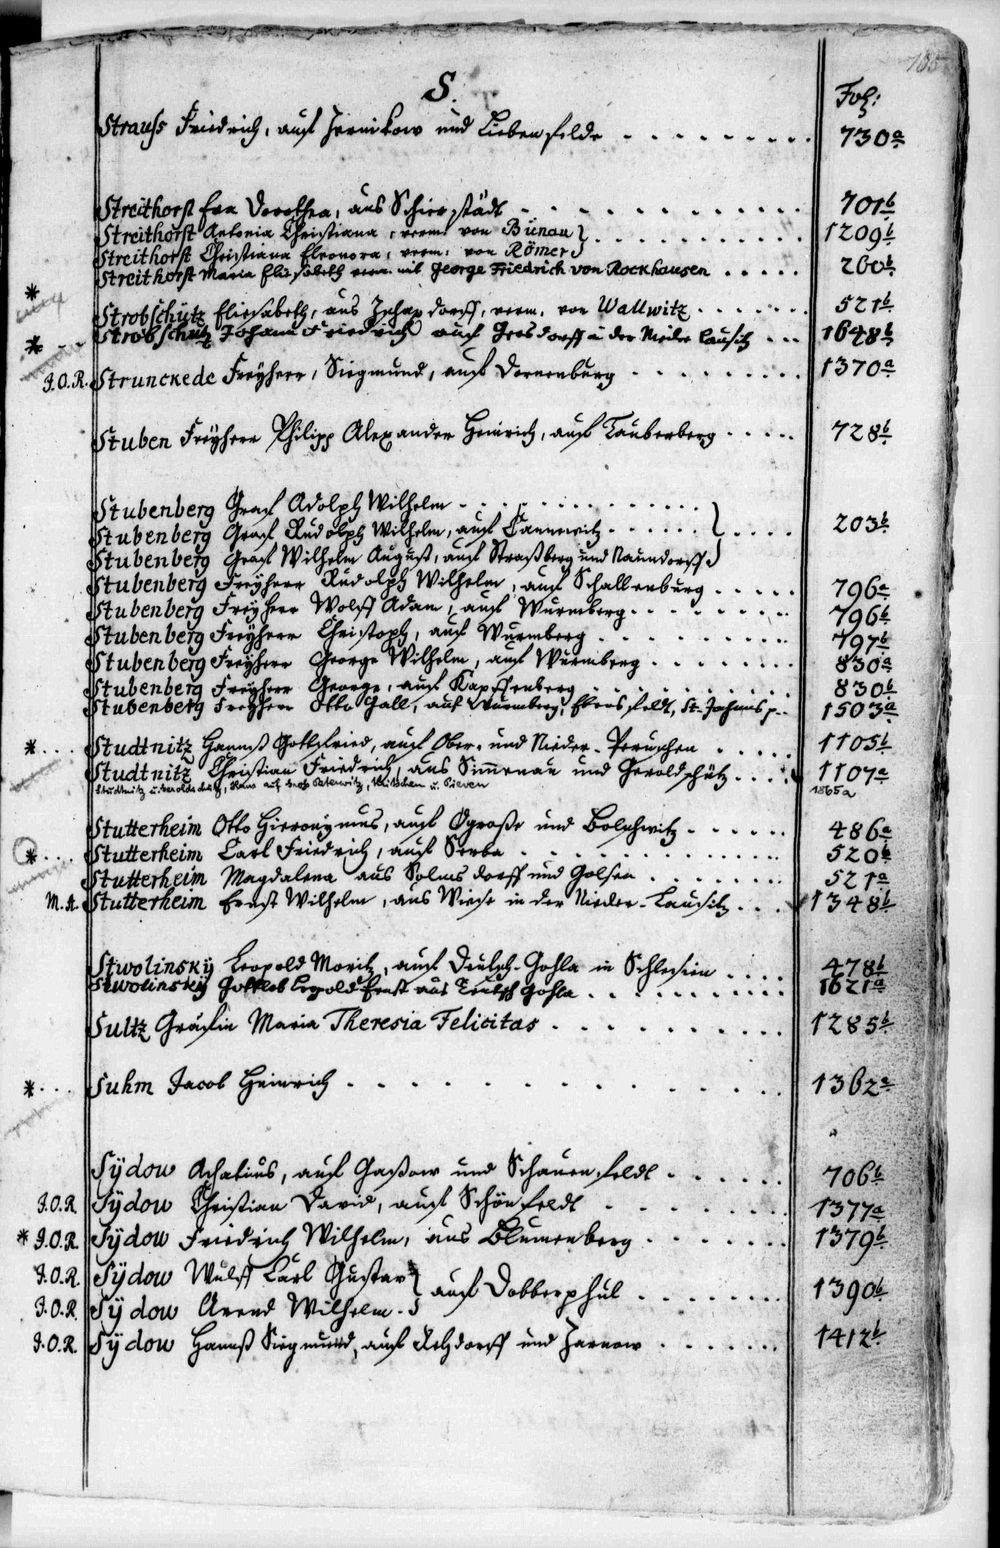 165
S.
Fol:
Strauss Friedrich, auf Zernikow und Liebenfelde 730a
Streithorst Eva Dorothea, aus Schierstädt 701b
Streithorst Antonia Christiana, verm: von Bünau 1209b
Streithorst Christiana Eleonora, verm: von Römer
Streithorst Maria Elisabeth verm. mit George Friedrich von Rockhausen 260b
* Strobschütz Elisabeth, aus dorff, verm. von Wallwitz 521b
* Strobschütz Johann Friedrich auf Gersdorff in der Nieder Lausitz 1648b
J.O.R. Strunckede Freyherr, Siegmund, auf Dornenburg 1370a
Stuben Freyherr Philipp Alexander Heinrich, auf Tauberberg 728b
Stubenberg Graf Adolph Wilhelm
Stubenberg Graf Rudolph Wilhelm, auf Cannewitz 203b
Stubenberg Graf Wilhelm August, auf Straßberg und Naundorff
Stubenberg Freyherr Rudolph Wilhelm, auf Schallenburg 796a
Stubenberg Freyherr Wolff Adam, auf Wurmberg 796b
Stubenberg Freyherr Christoph, auf Wurmberg 797b
Stubenberg Freyherr George Wilhelm, auf Wurmberg 830a
Stubenberg Freyherr George, auf Kapffenberg 830b
Stubenberg Freyherr Otto Gall, auf Wurmberg, St. Johannis p. 1503a
* Studtnitz Hannß Gottfried, auf Ober- und Nieder- 1105b
Studtnitz Christian Friedrich, aus Simmenau und Geroldschütz 1107a
Studtnitz u. Hans auf Groß Peterwitz, u. 1865a
Stutterheim Otto Hieronymus, auf Ogroße und Bolschwitz 486a
* Stutterheim Carl Friedrich, auf 520b
Stutterheim Magdalena aus Solmsdorff und Golsen 521a
M.A. Stutterheim Ernst Wilhelm, aus in der Nieder-Lausitz 1348b
Stwolinsky Leopold Moritz, auf Deutsch-Gohla in Schlesien 478b
Stwolinsky Gottlob Leopold Ernst aus Teutsch Gohla 1621a
Sultz Gräfin Maria Theresia Felicitas 1285b
* Suhm Jacob Heinrich 1362a
Sÿdow Achatius, auf Gaßow und Schauenfeldt 706b
J.O.R. Sÿdow Christian David, auf Schönfeldt 1377a
* J.O.R. Sÿdow Friedrich Wilhelm, aus Blumenberg 1379b
J.O.R. Sÿdow Wulff Carl Gustav auf Dobberphul 1390b
J.O.R. Sÿdow Arend Wilhelm
J.O.R. Sÿdow Hannß Siegmund, auf Rehdorff und Zernow 1412b